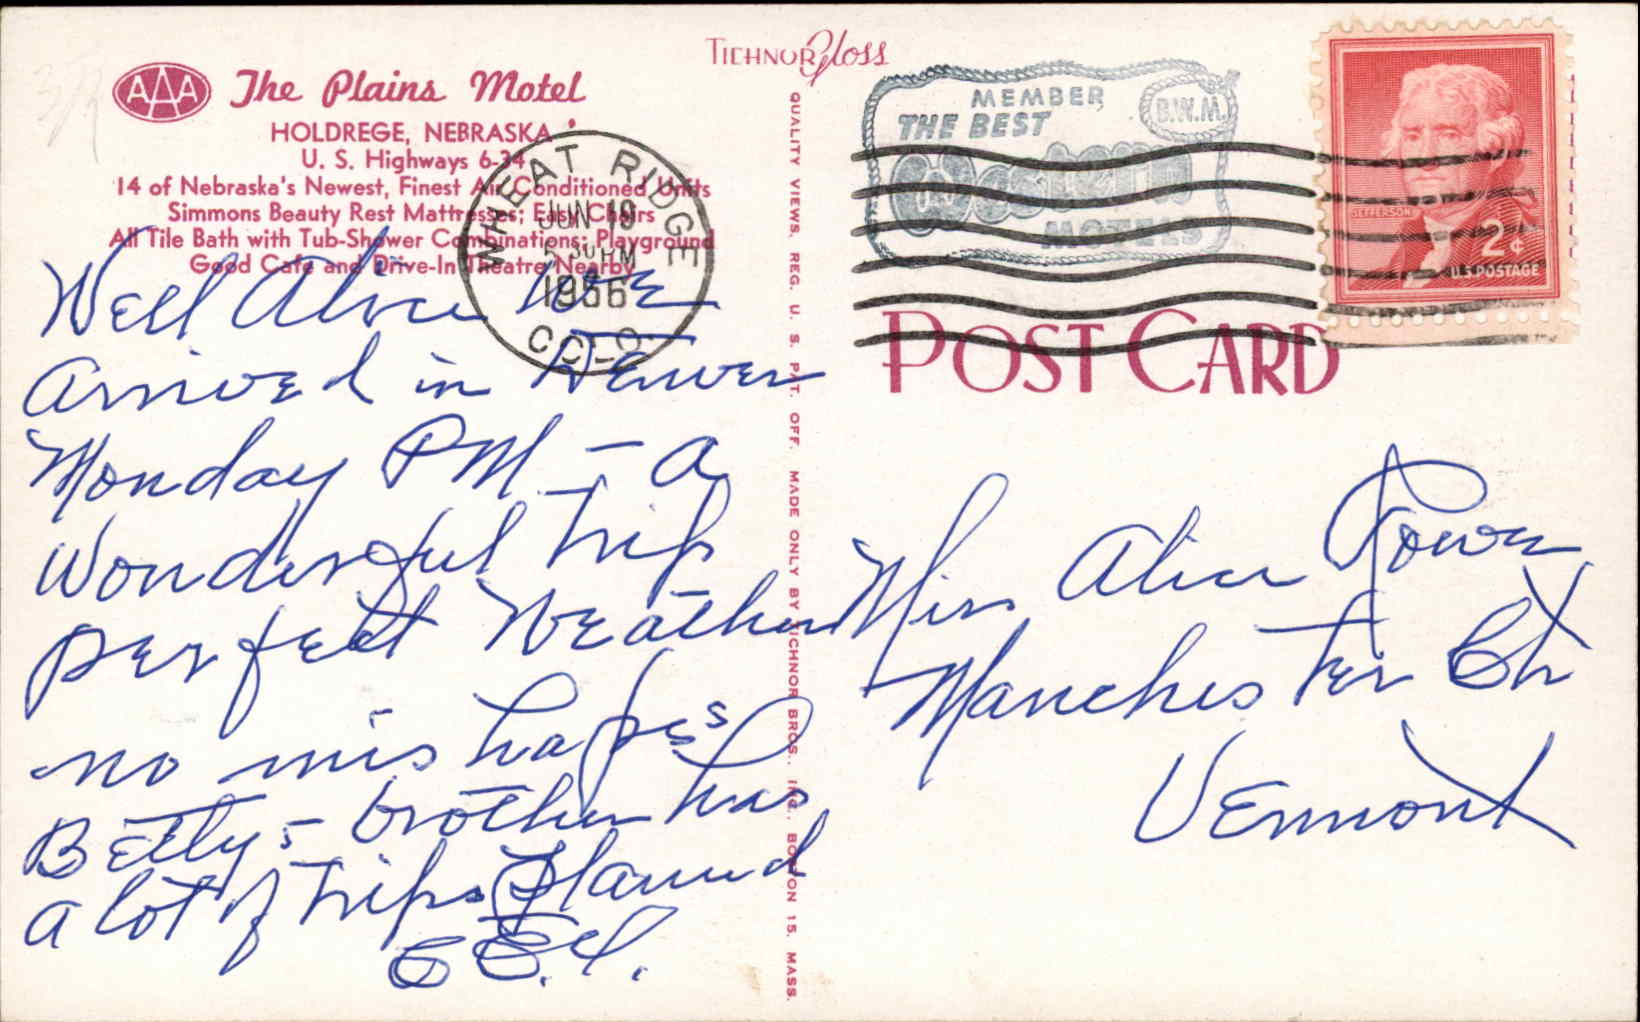 TICHNOR Gloss
AAA
The Plains Motel
HOLDREGE, NEBRASKA
U. S. Highways 6-34
14 of Nebraska's Newest, Finest Air Conditioned Units
Simmons Beauty Rest Mattresses; Easy Chairs
All Tile Bath with Tub-Shower Combinations; Playground
Good Cafe and Drive-In Theatre Nearby
WHEAT RIDGE
JUN 19
5 30 PM
1956
COLO.
Well Alice WE
arrived in Denver
Monday PM - a
Wonderful trip
perfect Weather
no mis hapes
Bettys - brother has
a lot of trips planned
QUALITY VIEWS. REG. U. S. PAT. OFF. MADE ONLY BY TICHNOR BROS., INC., BOSTON 15, MASS.
MEMBER
B.W.M.
THE BEST
Western
MOTELS
JEFFERSON
2¢
U.S. POSTAGE
POST CARD
Miss Alice Rowe
Manches ter
Vermont